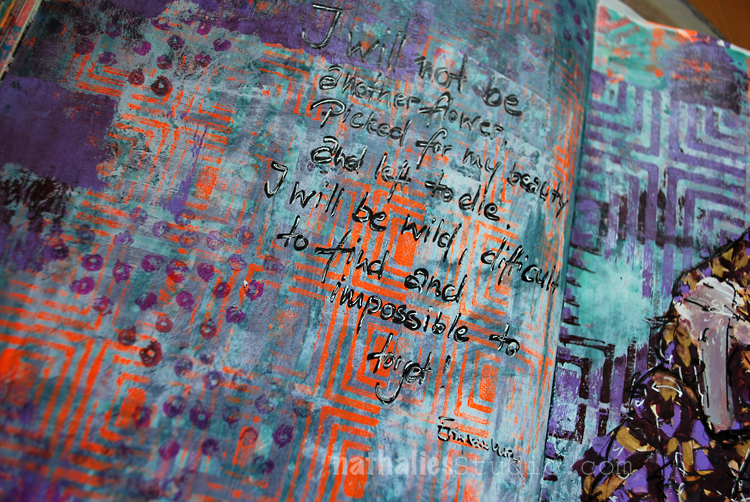 I will not be
another flower,
Picked for my beauty
and left to die.
I will be wild, difficult
to find and
impossible to
forget!
nathaliesstudio.com